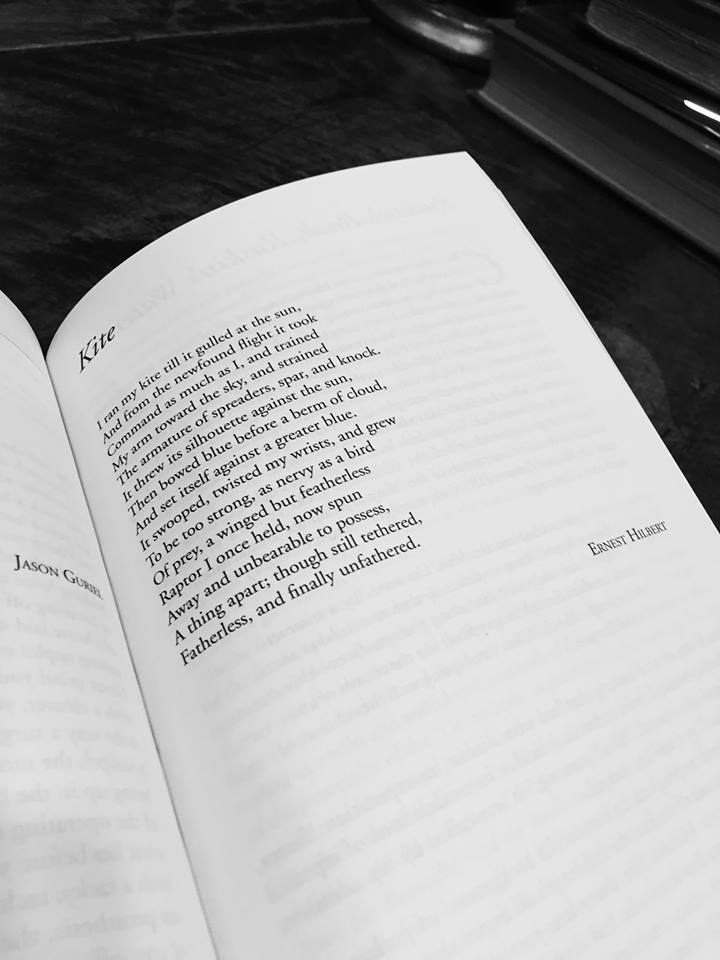 JASON GURIEL
Kite
I ran my kite till it gulled at the sun,
And from the newfound flight it took
Command as much as I, and trained
My arm toward the sky, and strained
The armature of spreaders, spar, and knock.
It threw its silhouette against the sun,
Then bowed blue before a berm of cloud,
And set itself against a greater blue.
It swooped, twisted my wrists, and grew
To be too strong, as nervy as a bird
Of prey, a winged but featherless
Raptor I once held, now spun
Away and unbearable to possess,
A thing apart; though still tethered,
Fatherless, and finally unfathered.
ERNEST HILBERT